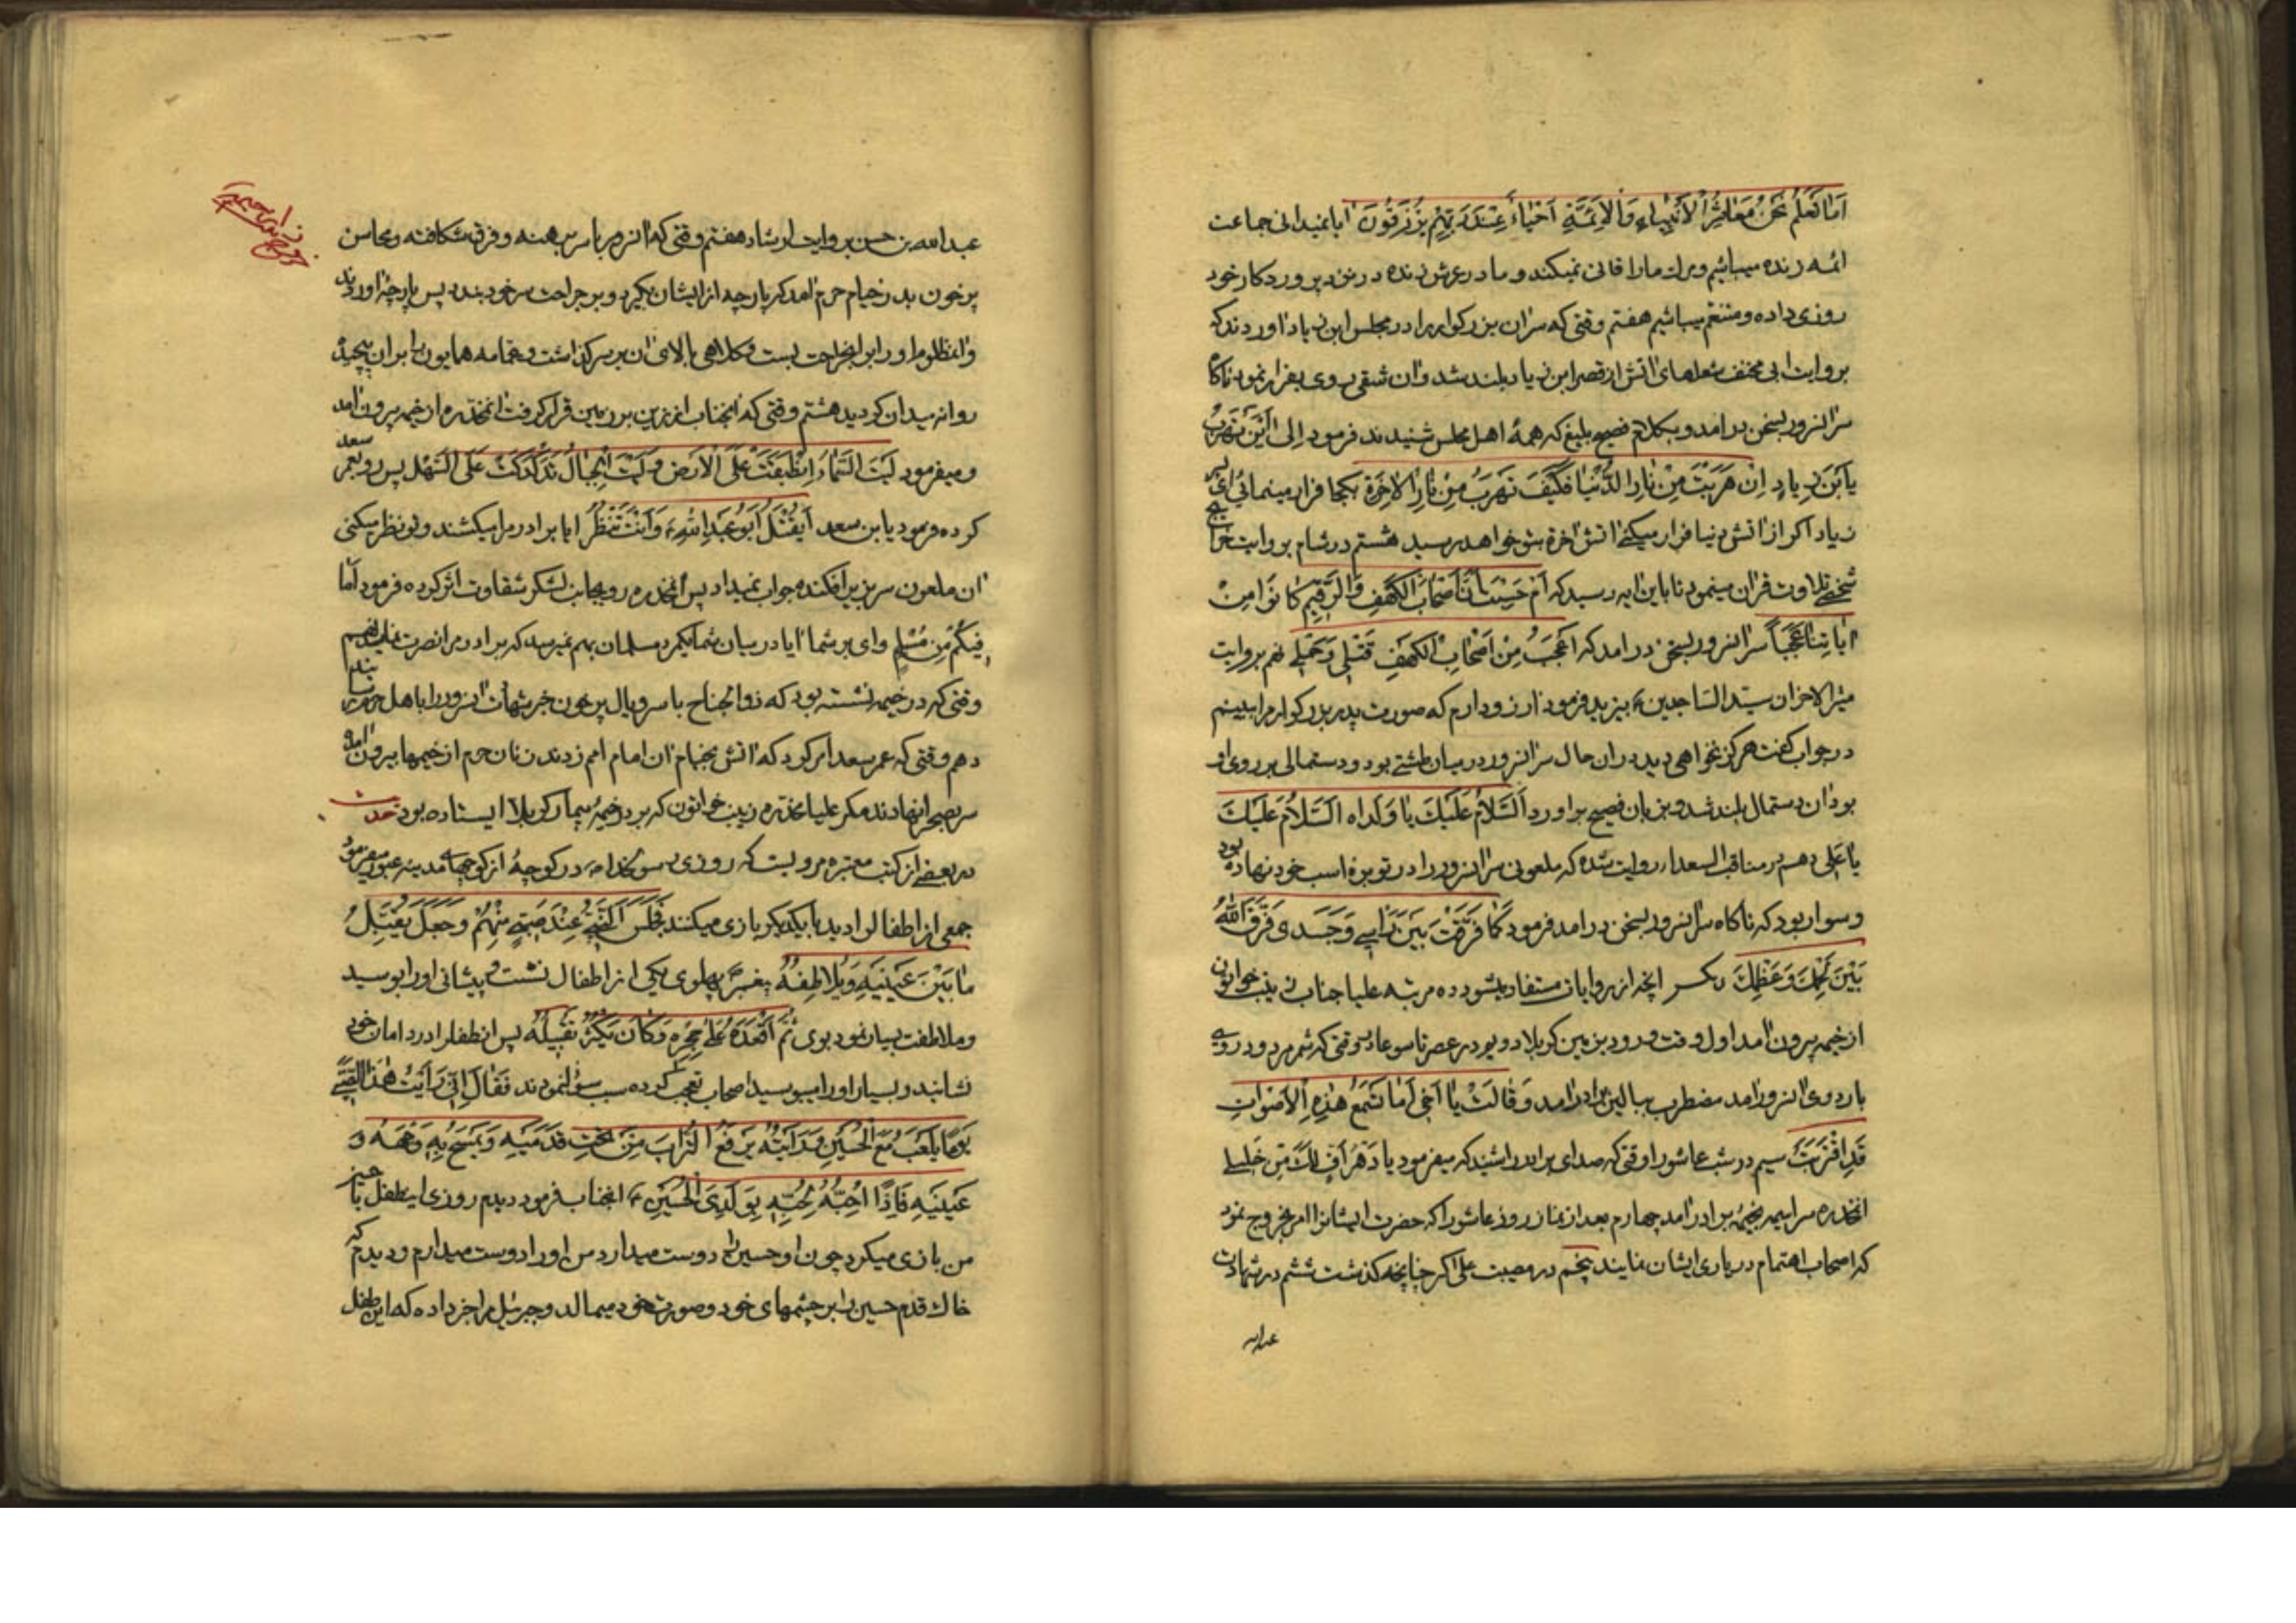 اَما تَعلَمُ نَحنُ مَعاشِرُ الاَنبِیاءِ وَالاَئِمَّةِ اَحْیاءٌ عِنْدَ رَبِّهِم یُرْزَقُونَ ایا نمیدانی جماعت
ائمه زنده میباشیم و مرك مارا فانی نمیکند و ما در عرش زنده در نزد پروردکار خود
روزی داده و متنعم میباشیم هفتم وقتی که سر ان بزرکوار را در مجلس ابن زیاد اوردند که
بروایت ابی مخنف شعلهای اتش از قصر ابن زیاد بلند شد و ان شقی روی بفرار نمود ناکاه
سر انسرور بسخن در امد و بکلام فصیح بلیغ که همهٔ اهل مجلس شنیدند فرمود اِلی اَیْنَ تَهْرَبُ
یَابْنَ زِیادٍ اِنْ هَرَبْتَ مِنْ نارِ الدُّنْیا فَکَیْفَ تَهْرَبُ مِنْ نارِ الاخِرَةِ بکجا فرار مینمائی ای پسر
زیاد اکر از اتش دنیا فرار میکنی اتش اخرة بتو خواهد رسید هشتم در شام بروایت خرایج
شخصی تلاوت قران مینمود تا باین ایه رسید که اَمْ حَسِبْتَ اَنَّ اَصْحابَ الْکَهْفِ وَالرَّقِیمِ کانُوا مِنْ
ایاتِنا عَجَباً سر انسرور بسخن در امد که اَعْجَبُ مِنْ اَصْحابِ الْکَهْفِ قَتْلِی وَحَمْلِی نهم بروایت
مثیر الاحزان سید الساجدین ع بیزید فرمود ارزو دارم که صورت پدر بزرکوارم را ببینم
در جواب کفت هرکز نخواهی دید در ان حال سر انسرور در میان طشتی بود و دستمالی بر روی او
بود ان دستمال بلند شد و بزبان فصیح براورد اَلسَّلامُ عَلَیْكَ یا وَلَداه اَلسَّلامُ عَلَیْكَ
یا عَلِی دهم در مناقب السعداء روایت شده که ملعونی سر انسرور را در توبرهٔ اسب خود نهاده بود
و سوار بود که ناکاه سر انسرور بسخن در امد فرمود کَما فَرَّقْتَ بَیْنَ رَاْسِی وَجَسَدِی فَرَّقَ اللهُ
بَیْنَ لَحْمِكَ وَعَظْمِكَ انچه از روایات مستفاد میشود ده مرتبه علیا جناب زینب خواتون
از خیمه بیرون امد اول وقت ورود بزمین کربلا دویم در عصر تاسوعا وقتی که شمر مردود رو
باردوی انسرور امد مضطرب ببالین برادر امد وَقالَتْ یا اَخِی اَما تَسْمَعُ هٰذِهِ الاَصْواتِ
قَدِ اقْتَرَبَتْ سیم در شب عاشورا وقتی که صدای برادر را شنید که میفرمود یا دَهْرُ اُفٍّ لَكَ مِن خَلِیلٍ
انمخدره سراسیمه بخیمهٔ برادر امد چهارم بعد از نماز روز عاشورا که حضرت ایشانرا امر بخروج نمود
که اصحاب اهتمام در یاری ایشان نمایند پنجم در مصیبت علی اکبر چنانچه کذشت ششم در شهادت
عبدالله
عبدالله بن حسن بروایت ارشاد هفتم وقتی که انسرور با سر برهنه و فرق شکافته و محاسن
پر خون بدر خیام حرم امد که پارچه از ایشان بکیرد و بر جراحت سر خود بندد پس پارچهٔ اوردند
و انمظلوم اورا بر انجراحت بست و کلاهی بالای ان بر سر کذاشت و عمامه همایون را بر ان پیچید
روانه میدان کردید هشتم وقتی که انجناب از زین بر زمین قرار کرفت انمخدره از خیمه بیرون امد
و میفرمود لَیْتَ السَّماءَ اِنْطَبَقَتْ عَلَی الاَرْضِ وَلَیْتَ الْجِبالُ تَدَکْدَکَتْ عَلَی السَّهْلِ پس رو بعمر سعد
کرده فرمود یابن سعد اَیُقْتَلُ اَبُو عَبْدِ اللهِ ع وَاَنْتَ تَنْظُرُ ایا برادر مرا میکشند و تو نظر میکنی
ان ملعون سر بزیر افکنده جواب نمیداد پس انمخدره رو بجانب لشکر شقاوت اثر کرده فرمود اَما
فِیکُمْ مِنْ مُسْلِمٍ وای بر شما ایا در میان شما یکمرد مسلمان بهم نمیرسد که برادر مرا نصرت نماید نهم
وقتی که در خیمه نشسته بود که ذوالجناح با سر و یال پر خون خبر شهادت انسرور را باهل حرم رسانید
دهم وقتی که عمر سعد امر کرد که اتش بخیام ان امام امم زدند زنان حرم از خیمها بیرون امده
سر بصحرا نهادند مکر علیا مخدره زینب خواتون که بر در خیمهٔ بیمار کربلا ایستاده بود حدیث
در بعضی از کتب معتبره مرویست که روزی رسول خدا ص در کوچهٔ از کوچهای مدینه عبور میفرمود
جمعی از اطفال را دید با یکدیکر بازی میکنند فَجَلَسَ النَّبِیُّ عِنْدَ صَبِیٍّ مِنْهُمْ وَجَعَلَ یُقَبِّلُ
ما بَیْنَ عَیْنَیْهِ وَیُلاطِفُهُ پیغمبر ص پهلوی یکی از اطفال نشست و پیشانی اورا بوسید
و ملاطفت بسیار نمود بوی ثُمَّ اَقْعَدَهُ عَلی حِجْرِهِ وَکانَ یُکْثِرُ تَقْبِیلَهُ پس انطفل را در دامان خود
نشانید و بسیار اورا میبوسید اصحاب تعجب کرده سبب سؤال نمودند فَقالَ اِنِّی رَاَیْتُ هٰذَا الصَّبِیَّ
یَوْماً یَلْعَبُ مَعَ الْحُسَیْنِ وَرَاَیْتُهُ یَرْفَعُ التُّرابَ مِنْ تَحْتِ قَدَمَیْهِ وَیَمْسَحُ بِهِ وَجْهَهُ وَ
عَیْنَیْهِ فَاِذًا اُحِبُّهُ لِحُبِّهِ بِوَلَدِیَ الْحُسَیْنِ ع انجناب فرمود دیدم روزی اینطفل با حسین
من بازی میکرد چون او حسین را دوست میدارد من اورا دوست میدارم و دیدم که
خاك قدم حسین را بر چشمهای خود و صورت خود میمالد و جبرئیل مرا خبر داده که این طفل